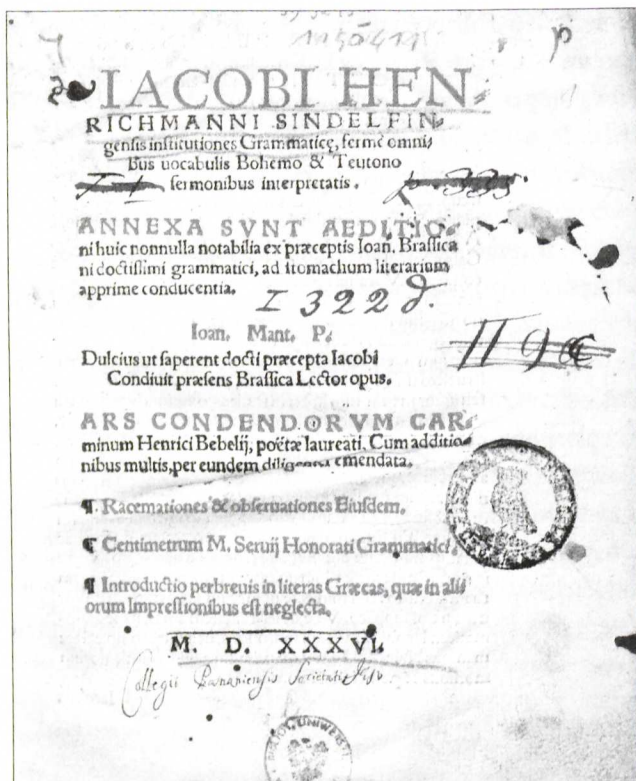 IACOBI HEN
RICHMANNI SINDELFIN-
gensis institutiones Grammaticę, fermè omni-
bus uocabulis Bohemo & Teutono
sermonibus interpretatis.
ANNEXA SVNT AEDITIO-
ni huic nonnulla notabilia ex præceptis Ioan. Brassica
ni doctissimi grammatici, ad stomachum literarium
apprime conducentia.
I 322 d.
Ioan. Mant. P.
Dulcius ut saperent docti præcepta Iacobi
Condiuit præsens Brassica Lector opus.
ARS CONDENDORVM CAR-
minum Henrici Bebelij, poëtæ laureati, Cum additio-
nibus multis, per eundem emendata.
¶ Racemationes & obseruationes Eiusdem.
¶ Centimetrum M. Seruij Honorati Grammatici.
¶ Introductio perbreuis in literas Græcas, quæ in ali
orum Impressionibus est neglecta.
M. D. XXXVI.
Collegii Societatis